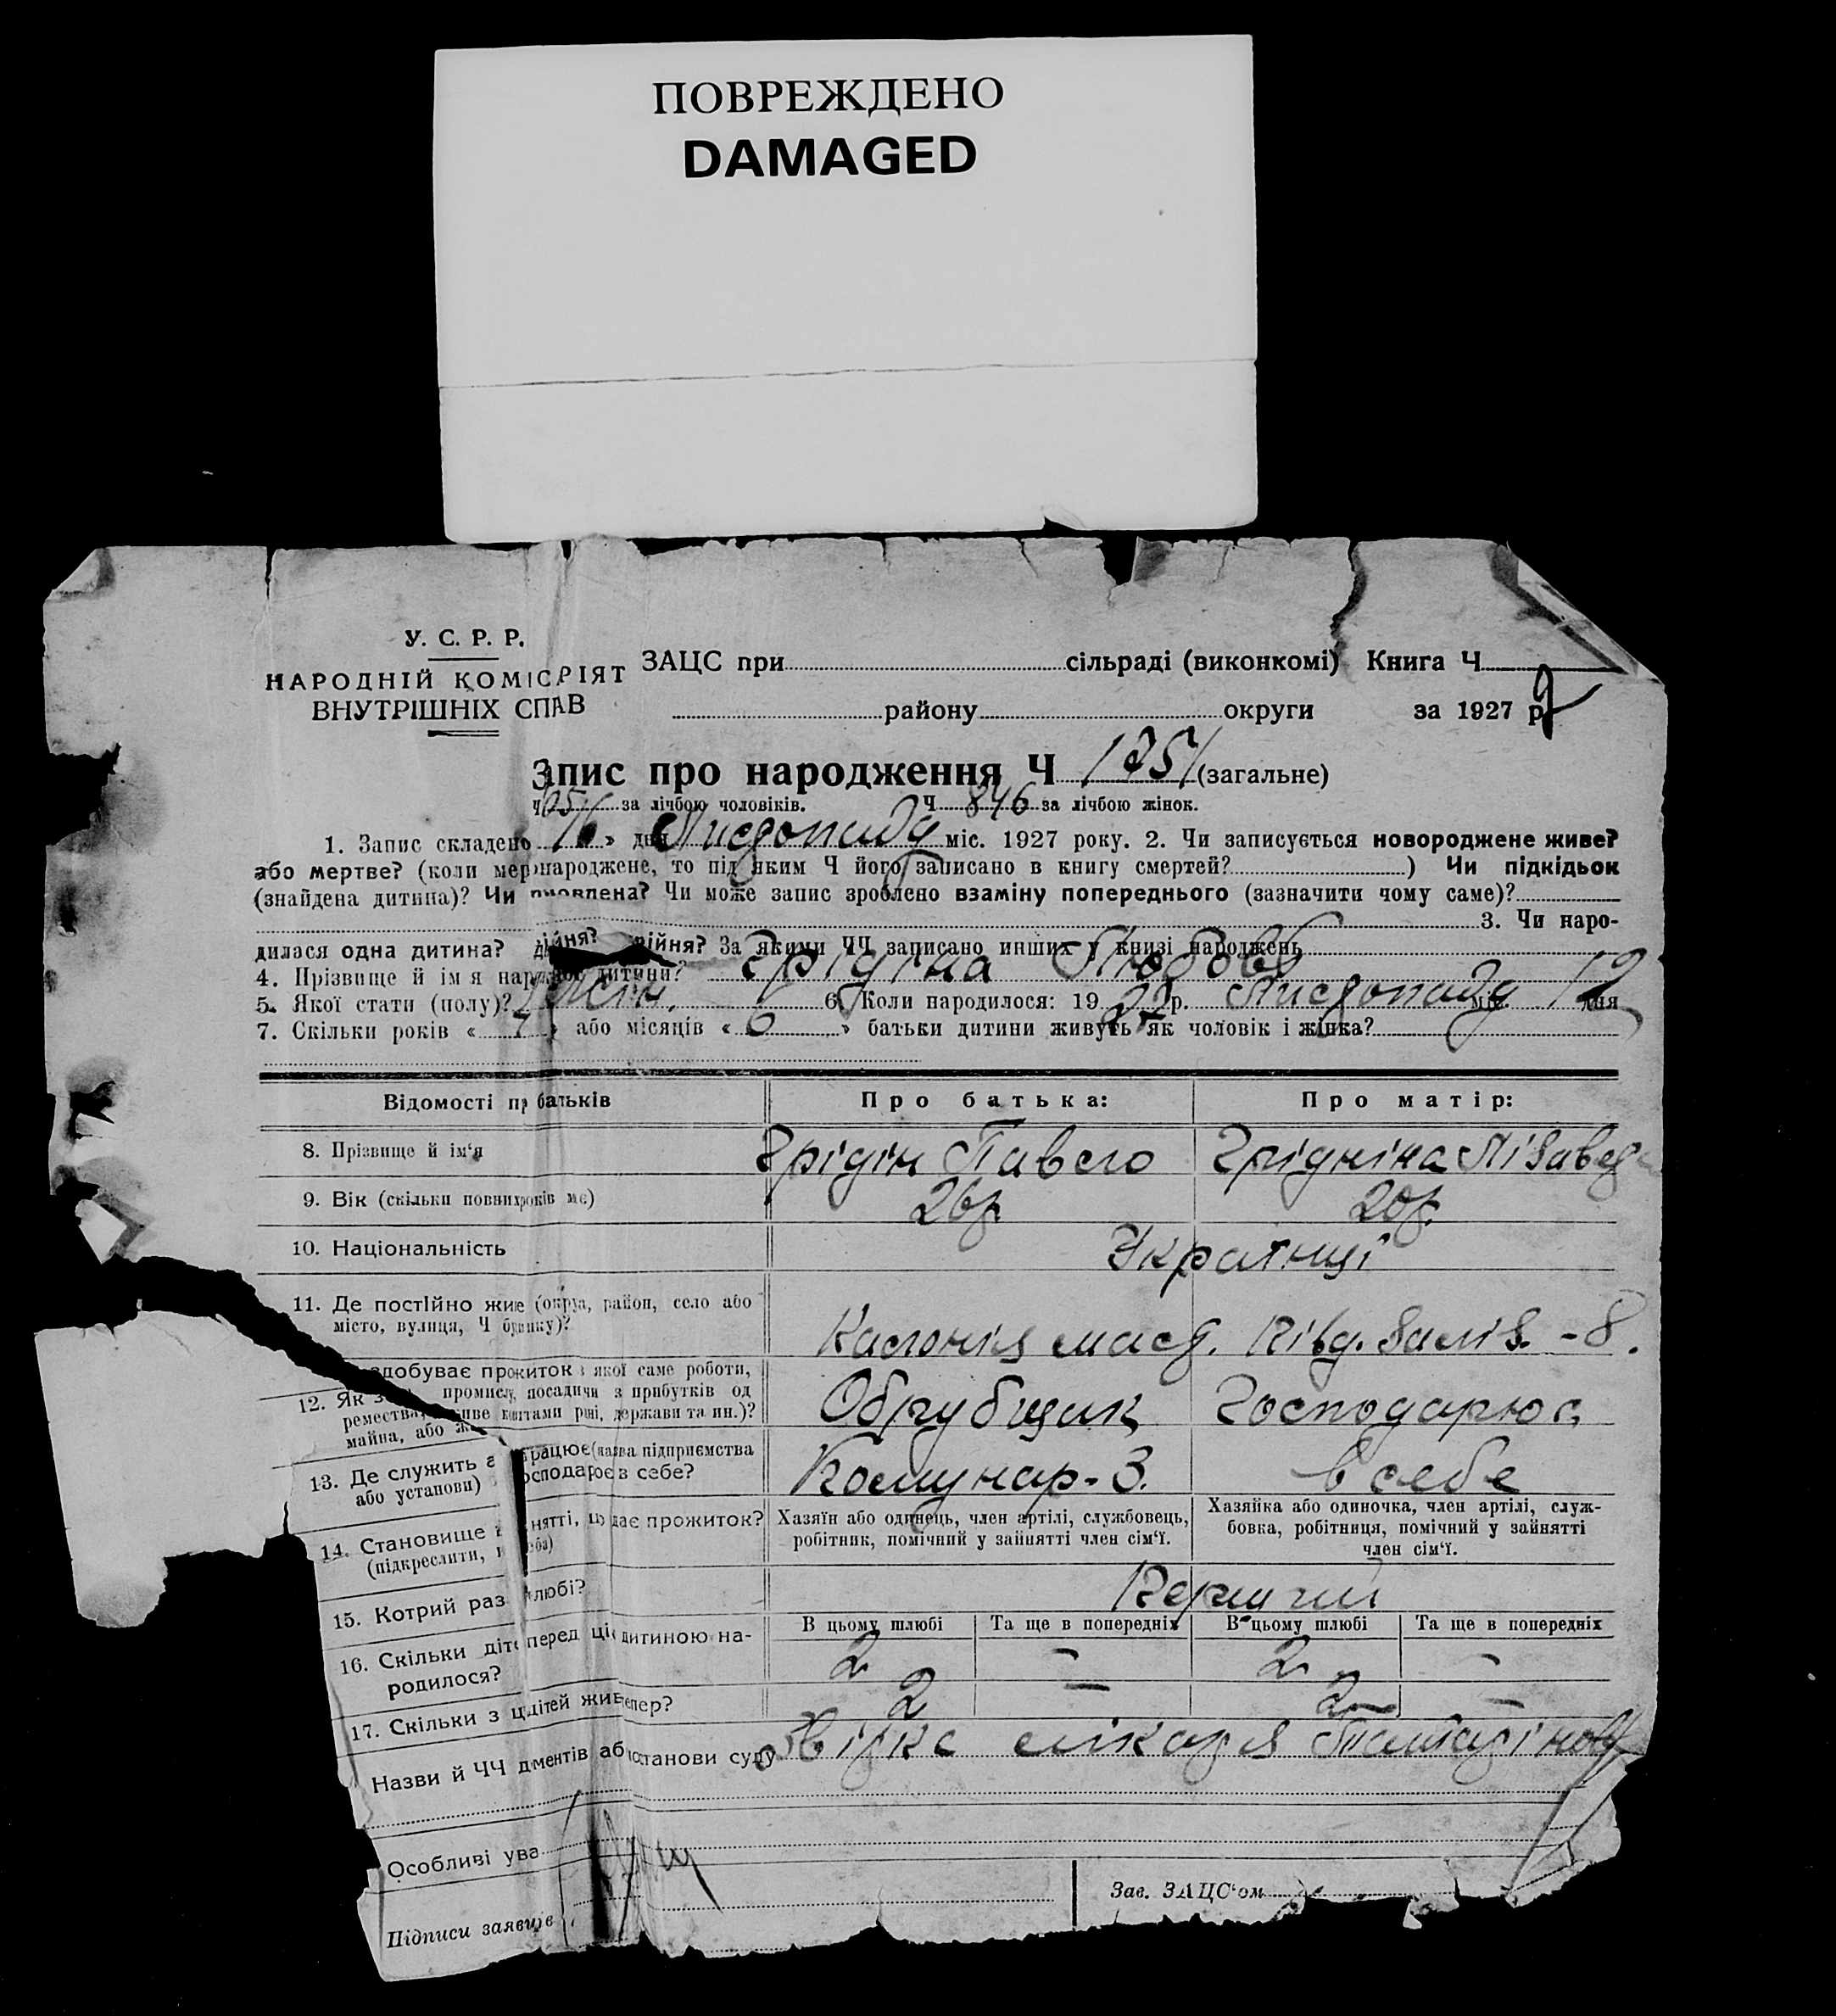 ПОВРЕЖДЕНО
DAMAGED
У. С. Р. Р.
НАРОДНІЙ КОМІСРІЯТ
ВНУТРІШНІХ СПАВ
ЗАЦС при сільраді (виконкомі) Книга Ч
району округи за 1927 р.
Зпис про народження Ч 1751 (загальне)
за лічбою чоловіків. Ч 846 за лічбою жінок.
1. Запис складено 16 » дня Листопаду міс. 1927 року. 2. Чи записується новороджене живе?
або мертве? (коли мертвонароджене, то під яким Ч його записано в книгу смертей? ) Чи підкідьок
(знайдена дитина)? Чи Чи може запис зроблено взаміну попереднього (зазначити чому саме)?
3. Чи наро-
дилася одна дитина? двійня? трійня? За якими ЧЧ записано инших у книзі народжень
4. Прізвище й ім'я дитини? Грідіна Любовь
5. Якої стати (полу)? жін. 6. Коли народилося: 1927 р. Листопаду міс. 12 дня
7. Скільки років « » або місяців « 6 » батьки дитини живуть як чоловік і жінка?
Відомості пр батьків Про батька: Про матір:
8. Прізвище й ім'я Грідін Павло Грідніна Лізавет
9. Вік (скільки повних років має) 26р. 20р.
10. Національність Українці
11. Де постійно живе (округа, район, село або
місто, вулиця, Ч будинку)? Калонія маст. Півд. заліз. - 8.
12. Як здобуває прожиток з якої саме роботи,
ремества, промислу, посади чи з прибутків од
майна, або живе коштами рідні, держави та ин.)? Обрубщик Господарює
13. Де служить а працює (назва підприємства
або установи) господарює в себе? Комунар-3. в себе
14. Становище в занятті, що дає прожиток?
(підкреслити, еба)
Хазяїн або одинець, член артілі, службовець,
робітник, помічний у зайнятті член сім'ї.
Хазяйка або одиночка, член артілі, служ-
бовка, робітниця, помічний у зайнятті
член сім'ї.
15. Котрий раз шлюбі? Перший
16. Скільки діте перед ціє дитиною на-
родилося?
В цьому шлюбі Та ще в попередніх В цьому шлюбі Та ще в попередніх
2 - 2 -
17. Скільки з ц дітей живе тепер? 2 - 2 -
Назви й ЧЧ документів або постанови суду Звірка лікаря
Особливі ува
Підписи заявців
Зав. ЗАЦС'ом